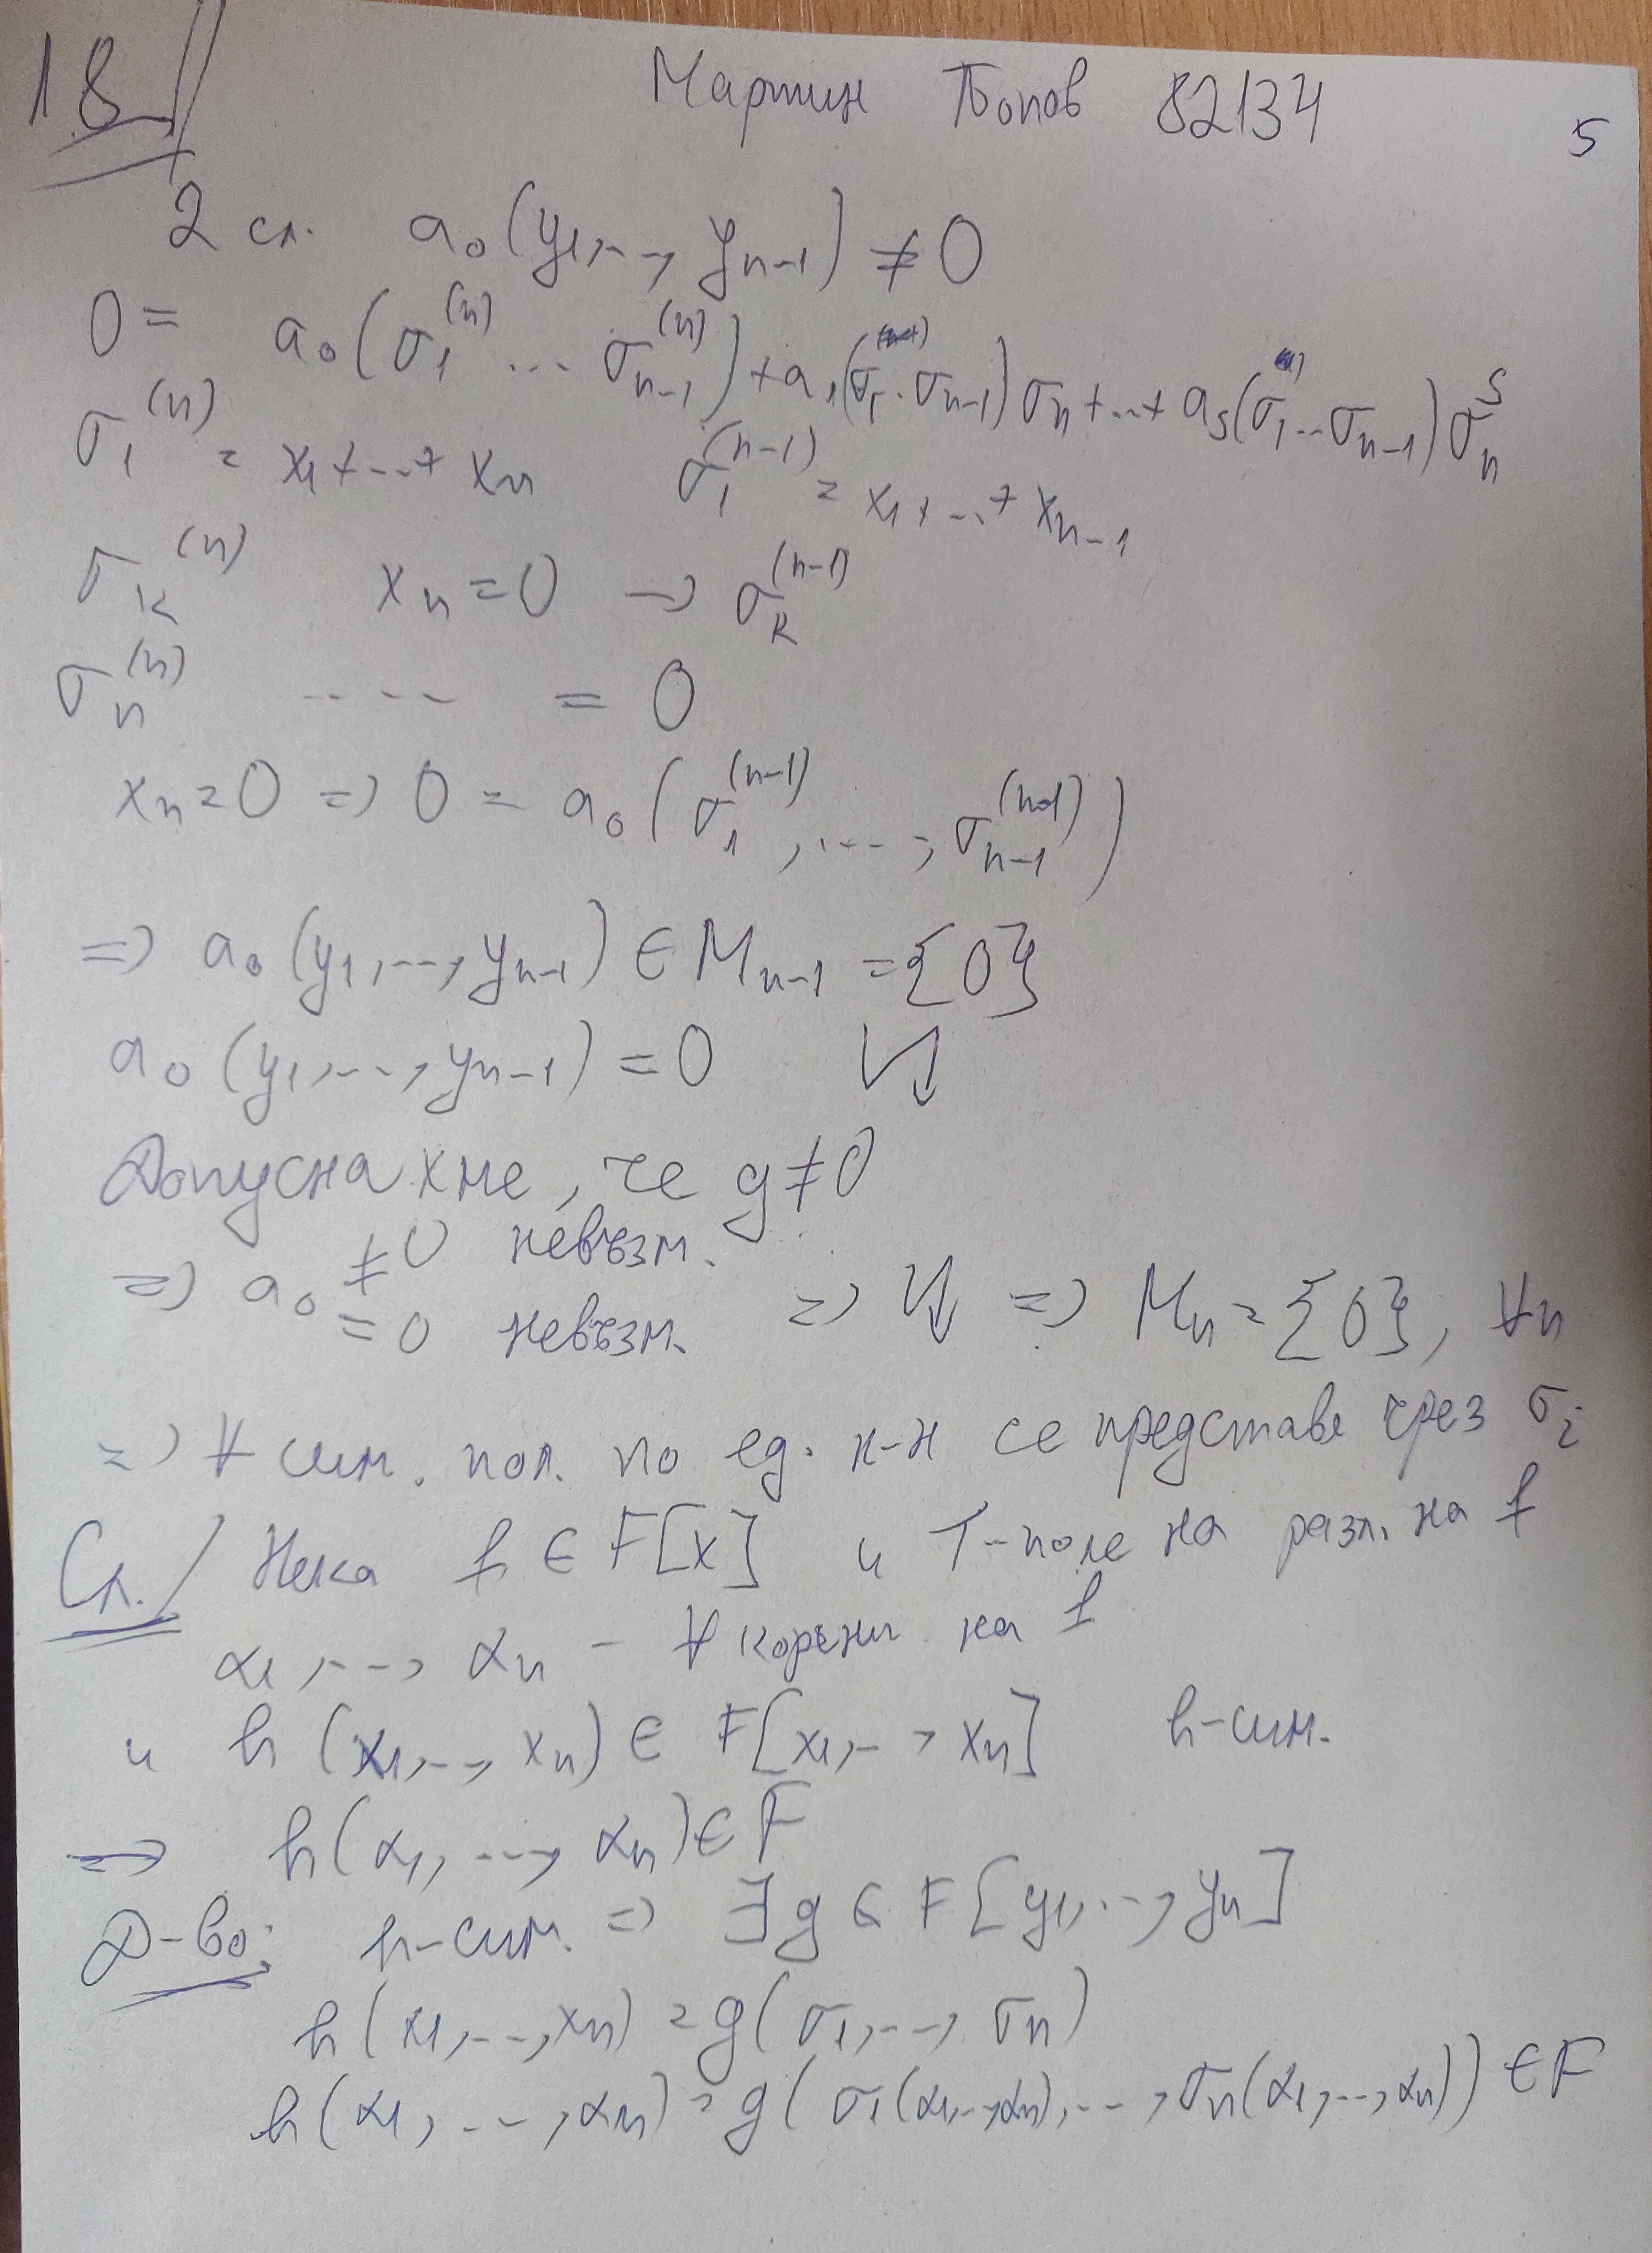 18
Мартин Попов 82134 5
2 сл. a₀(y₁,..,yₙ₋₁) ≠ 0
0 = a₀(σ₁⁽ⁿ⁾ ... σₙ₋₁⁽ⁿ⁾) + a₁(σ₁..σₙ₋₁)σₙ + ... + aₛ(σ₁...σₙ₋₁)σₙˢ
σ₁⁽ⁿ⁾ = x₁+...+xₙ σ₁⁽ⁿ⁻¹⁾ = x₁+...+xₙ₋₁
σₖ⁽ⁿ⁾ xₙ=0 → σₖ⁽ⁿ⁻¹⁾
σₙ⁽ⁿ⁾ .... = 0
xₙ=0 ⇒ 0 = a₀(σ₁⁽ⁿ⁻¹⁾,...,σₙ₋₁⁽ⁿ⁻¹⁾)
⇒ a₀(y₁,...,yₙ₋₁) ∈ Mₙ₋₁ = {0}
a₀(y₁,...,yₙ₋₁) = 0 ↯
Допуснахме, че g≠0
⇒ a₀ ≠0 невъзм.
=0 невъзм. ⇒ ↯ ⇒ Mₙ={0}, ∀n
⇒ ∀ сим. пол. по ед. н-н се представя чрез σᵢ
Сл./ Нека f ∈ F[x] и T-поле на разл. на f
α₁,...,αₙ - ∀ корени на f
и h(x₁,..,xₙ) ∈ F[x₁,..,xₙ] h-сим.
⇒ h(α₁,...,αₙ) ∈ F
Д-во: h-сим. ⇒ ∃g ∈ F[y₁,...,yₙ]
h(x₁,...,xₙ) = g(σ₁,...,σₙ)
h(α₁,...,αₙ) = g(σ₁(α₁,..,αₙ),...,σₙ(α₁,...,αₙ)) ∈ F